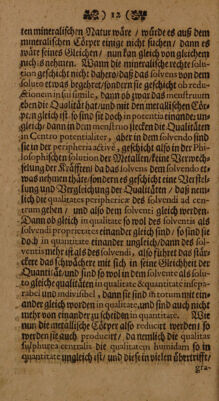 12
ten mineralischen Natur wäre / würde es auß dem
mineralischen Cörper einige nicht ziehen / dann es
wäre seines Gleichen / nun kan gleich von gleichem
nichts nehmen. Wann die mineralische rechte solu-
tion geschicht nicht dahero / daß das solvens von dem
soluto etwas begehret / sondern sie geschicht ob redu-
ctionem in sui simile, dann ob zwar das menstruum
eben die Qualität hat / und mit den metallischen Cör-
pern gleich ist / so sind sie doch in potentia einander un-
gleich / dann in dem menstruo stecken die Qualitäten
in Centro potentialiter, aber in dem solvendo sind
sie in der peripheria activè, geschicht also in der Phi-
losophischen solution der Metallen / keine Verwechs-
lung der Kräfften / da das solvens dem solvendo et-
was nehmen thäte / sondern es geschicht eine Verstel-
lung und Vergleichung der Qualitäten / daß nem-
lich die qualitates periphericæ des solvendi ad cen-
trum gehen / und also dem solventi gleich werden.
Dann ob gleich in qualitate so wol des solventis als
solvendi proprietates einander gleich sind / so sind sie
doch in quantitate einander ungleich / dann des sol-
ventis mehr ist als des solvendi, also führet das stär-
ckere das schwächere mit sich in seine Gleichheit der
Quantität / und sind so wol in dem solvente als solu-
to gleiche qualitäten in qualitate & quantitate insepa-
rabel und indivisibel, dann sie sind in totum mit ein-
ander gleich worden in qualitate, und sind auch nicht
mehr von einander zu scheiden in quantitate. Wie
nun die metallische Cörper also reducirt werden / so
werden sie auch producirt / da nemlich die qualitas
sulphurea centralis die qualitatem humidam so in
quantitate ungleich ist / und diese in vielen übertrifft /
gra-